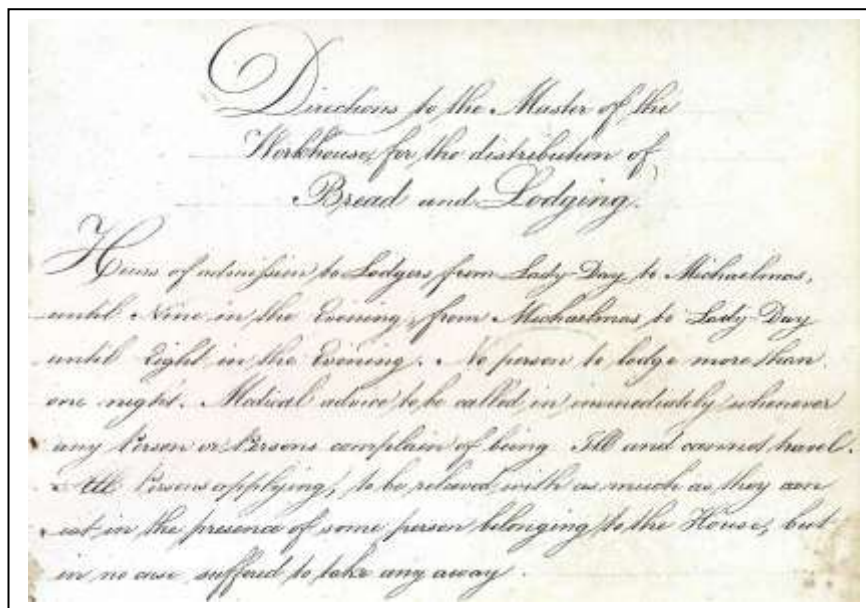 Directions to the Master of the
Workhouse, for the distribution of
Bread and Lodging.
Hours of admission to Lodgers, from Lady-Day to Michaelmas,
until Nine in the Evening, from Michaelmas to Lady-Day
until Eight in the Evening. No person to lodge more than
one night. Medical advice to be called in immediately whenever
any Person or Persons complain of being Ill and cannot travel.
All Persons applying, to be relieved with as much as they can
eat in the presence of some person belonging to the House, but
in no case suffered to take any away.